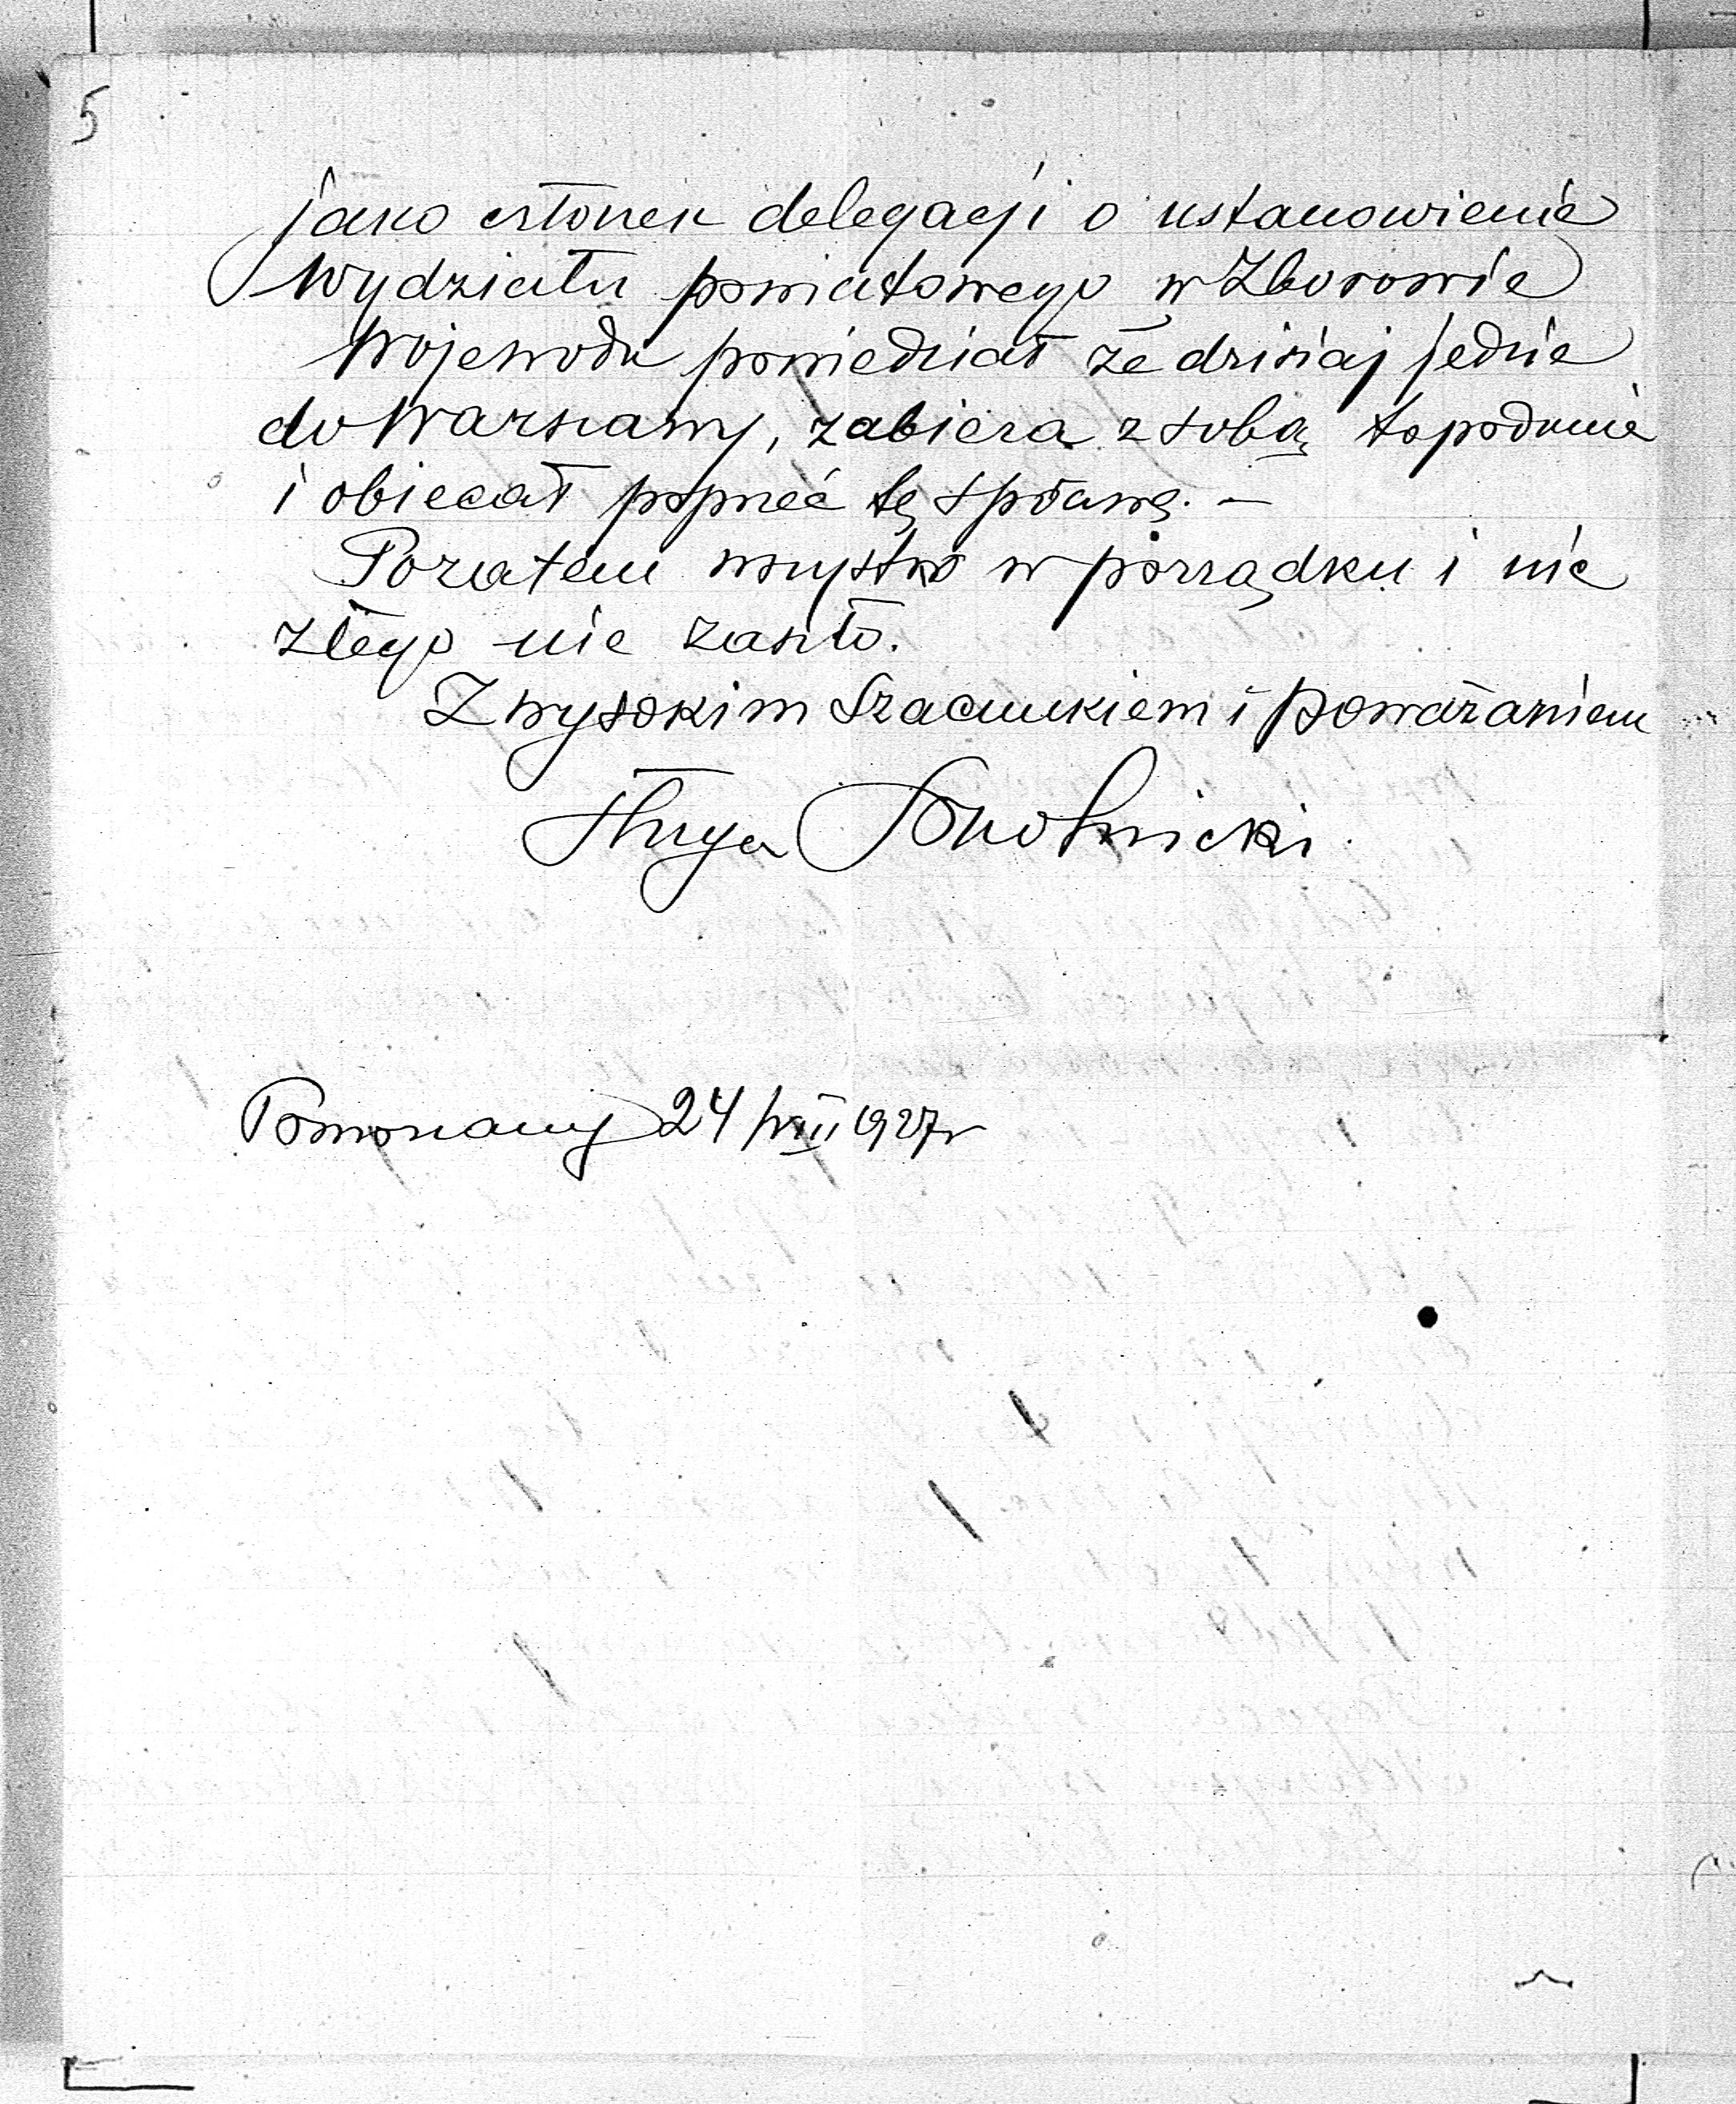 5
jako członek delegacji o ustanowienie
Wydziału powiatowego w Zborowie
Wojewoda powiedział że dzisiaj jedzie
do Warszawy, zabiera z sobą to podanie
i obiecał poprzeć tę sprawę. –
Pozatem wszystko w porządku i nic
złego nie zaszło.
Z wysokim Szacunkiem i poważaniem
sługa Sokolnicki.
Pomorzany 24/VIII 1927r